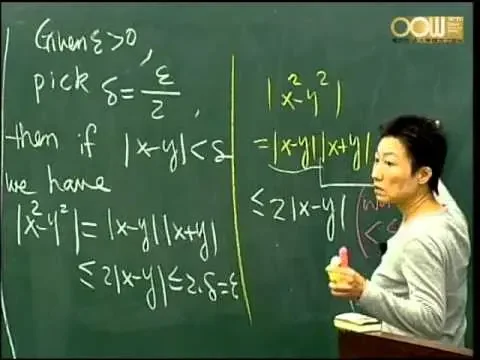 Given ε>0,
pick δ=ε/2,
then if |x-y|<δ
we have
|x²-y²|=|x-y||x+y|
≤2|x-y|≤2·δ=ε
|x²-y²|
=|x-y||x+y|
≤2|x-y|
OCW